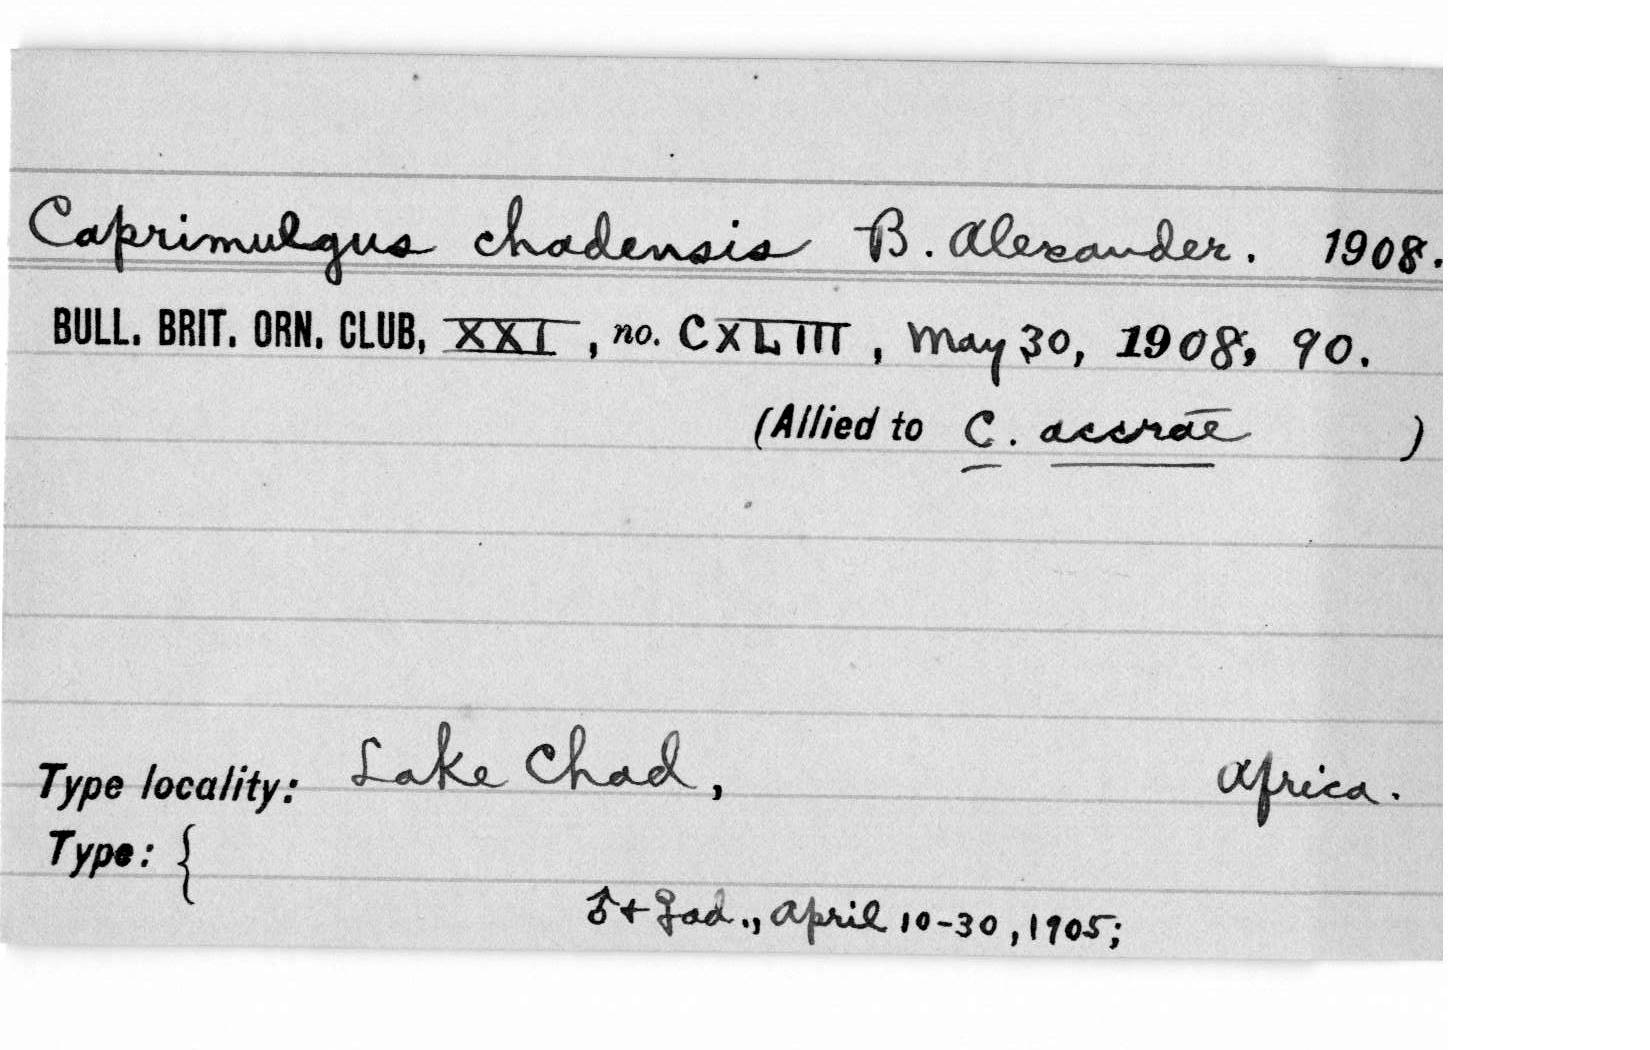 Caprimulgus chadensis B. Alexander. 1908.
BULL. BRIT. ORN. CLUB, XXI, no. CXLIII, May 30, 1908, 90.
(Allied to C. accrae )
Type locality: Lake Chad, Africa.
Type: {
♂ + ♀ ad., April 10-30, 1905;